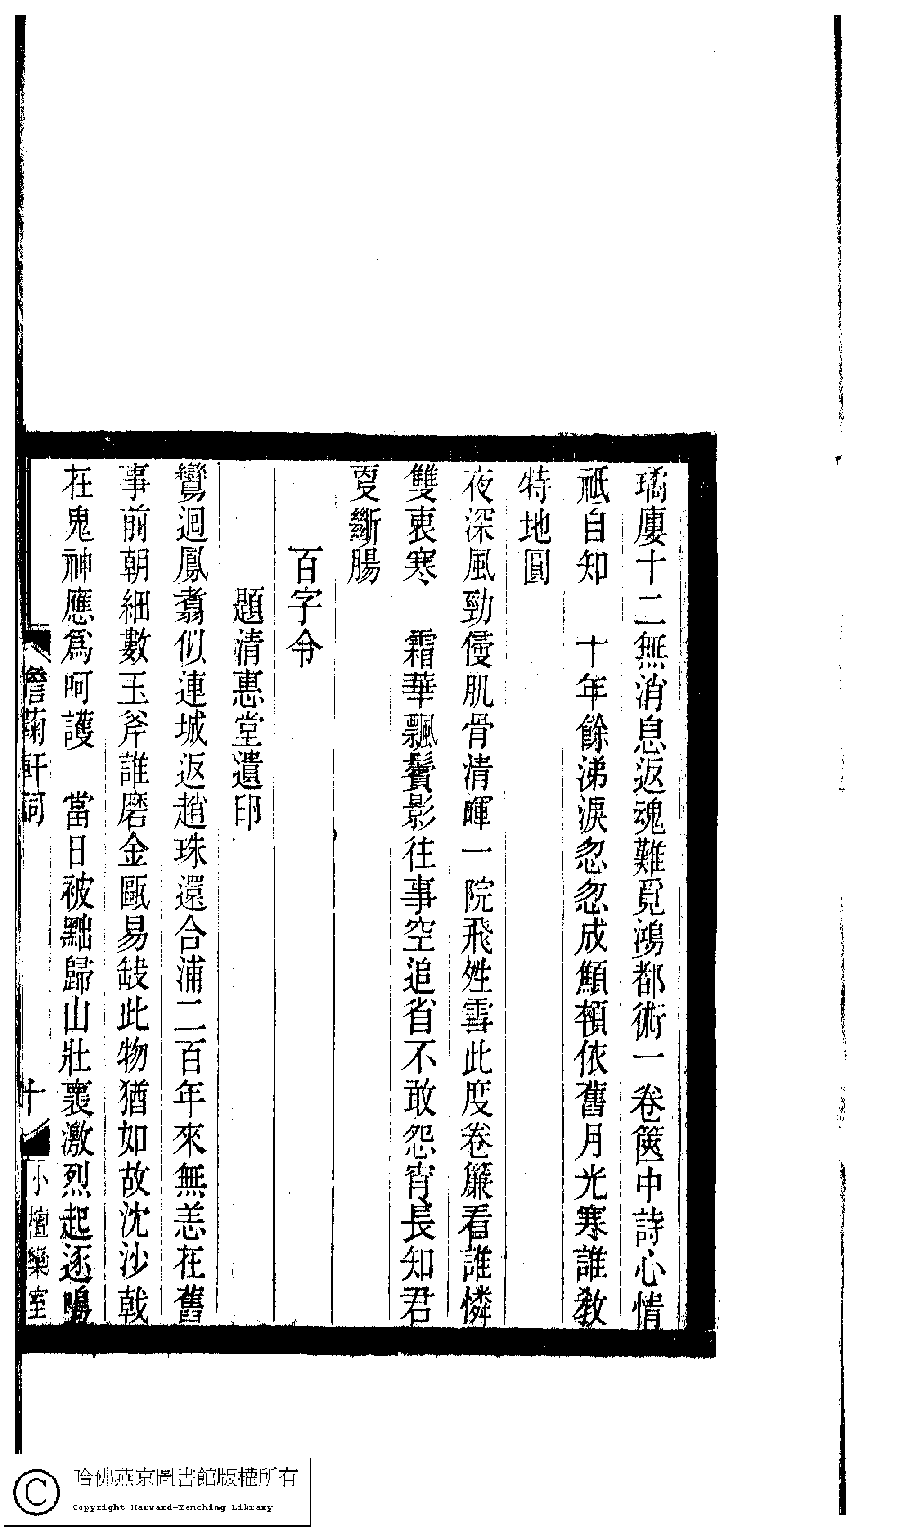 璚廔十二無消息返魂難覓鴻都術一卷篋中詩心情
祇自知　十年餘涕淚忽忽成顦頓依舊月光寒誰敎
特地圓
夜深風勁侵肌骨清暉一院飛殘雪此度卷簾看誰憐
雙袖寒　霜華飄鬢影往事空追省不敢怨宵長知君
更斷腸
百字令
題清惠堂遺印
鸞迴鳳翥似連城返趙珠還合浦二百年來無恙在舊
事前朝細數玉斧誰磨金甌易缺此物猶如故沈沙戟
在鬼神應爲呵護　當日被黜歸山壯襄激烈起逐鳴
詹蘜軒詞
十
小檀欒室
哈佛燕京圖書館版權所有
Copyright Harvard-Yenching Library